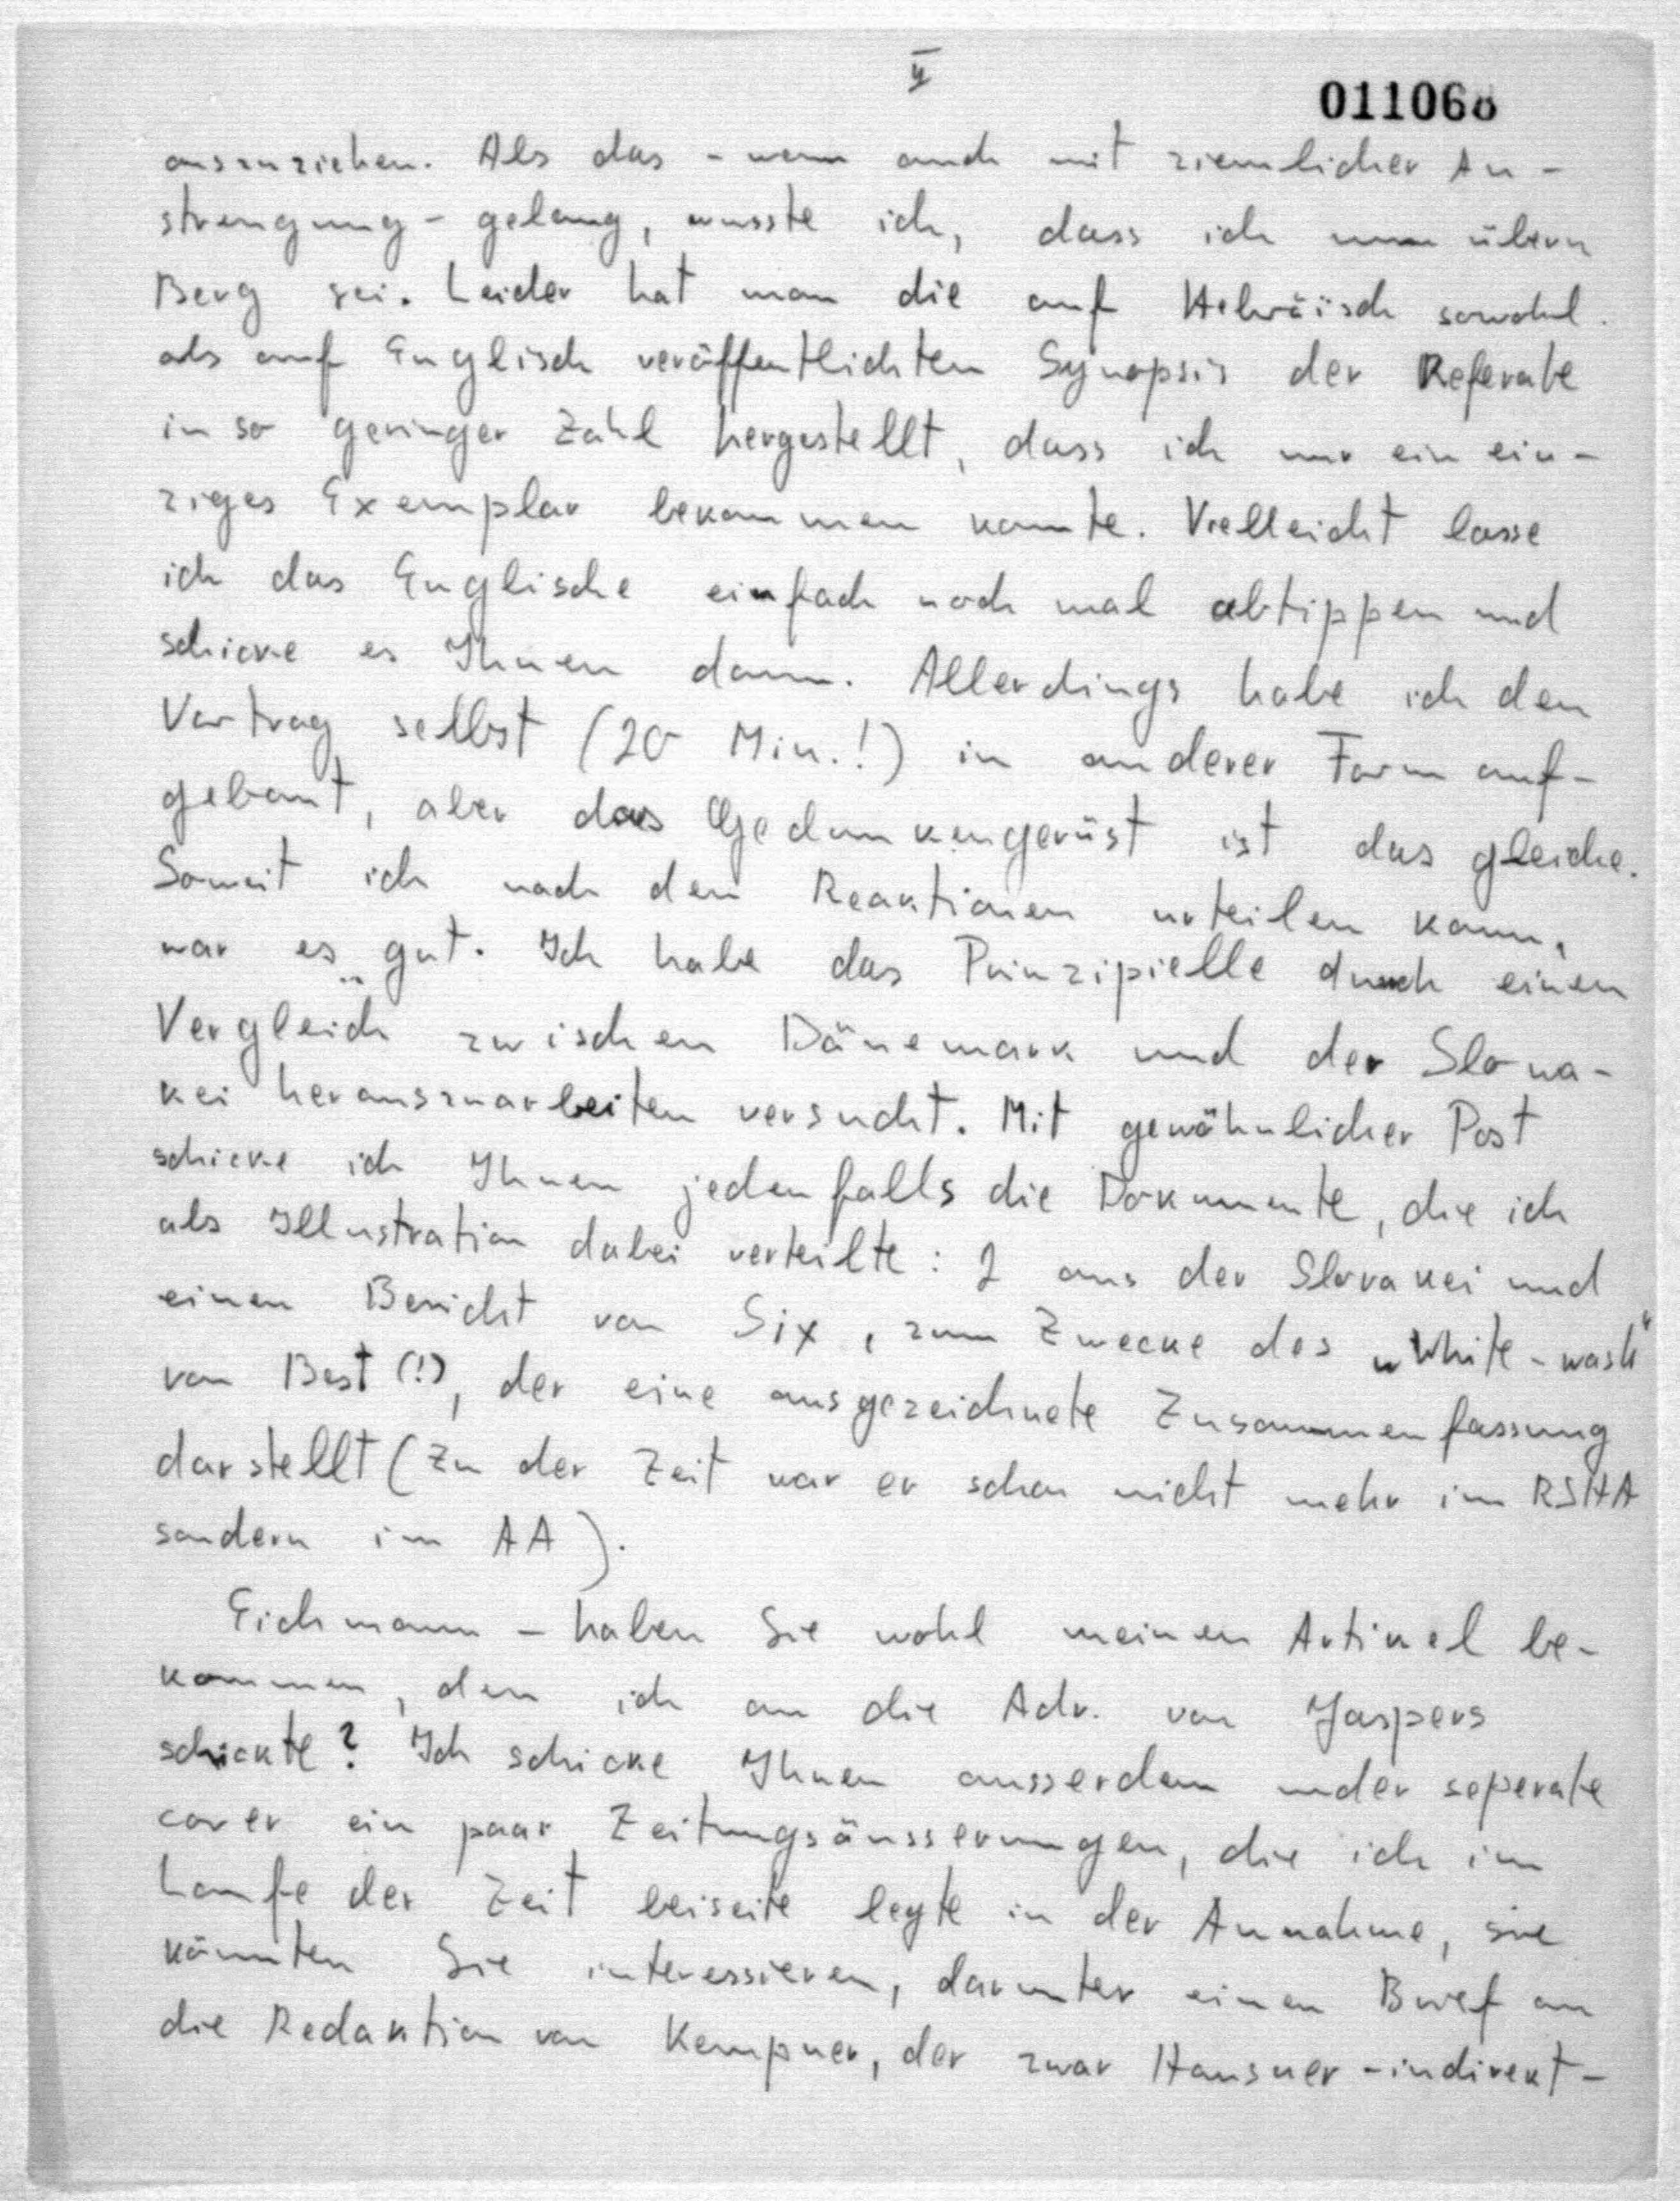 V
011068
auszuziehen. Als das - wenn auch mit ziemlicher An-
strengung - gelang, wusste ich, dass ich nun übern
Berg sei. Leider hat man die auf Hebräisch sowohl
als auf Englisch veröffentlichten Synopsis der Referate
in so geringer Zahl hergestellt, dass ich nur ein ein-
ziges Exemplar bekommen konnte. Vielleicht lasse
ich das Englische einfach noch mal abtippen und
schicke es Ihnen dann. Allerdings habe ich den
Vortrag selbst (20 Min.!) in anderer Form auf-
gebaut, aber das Gedankengerüst ist das gleiche.
Soweit ich nach den Reaktionen urteilen kann,
war es gut. Ich habe das Prinzipielle durch einen
Vergleich zwischen Dänemark und der Slowa-
kei herauszuarbeiten versucht. Mit gewöhnlicher Post
schicke ich Ihnen jedenfalls die Dokumente, die ich
als Illustration dabei verteilte: 2 aus der Slovakei und
einen Bericht von Six, zum Zwecke des „White-wash“
von Best (!), der eine ausgezeichnete Zusammenfassung
darstellt (Zu der Zeit war er schon nicht mehr im RSHA
sondern im AA).
Eichmann - haben Sie wohl meinen Artikel be-
kommen, den ich an die Adr. von Jaspers
schickte? Ich schicke Ihnen ausserdem under seperate
cover ein paar Zeitungsäusserungen, die ich im
Laufe der Zeit beiseite legte in der Annahme, sie
könnten Sie interessieren, darunter einen Brief an
die Redaktion von Kempner, der zwar Hausner - indirekt -